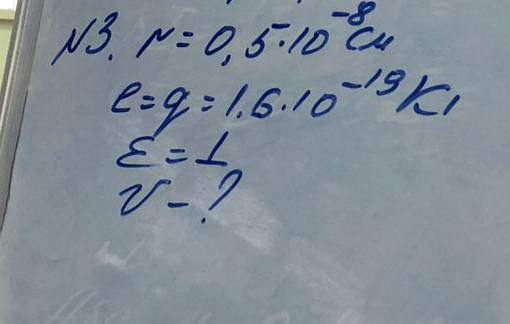 N3. r=0,5·10⁻⁸см
e=q=1.6·10⁻¹⁹Кл
ε=1
v-?